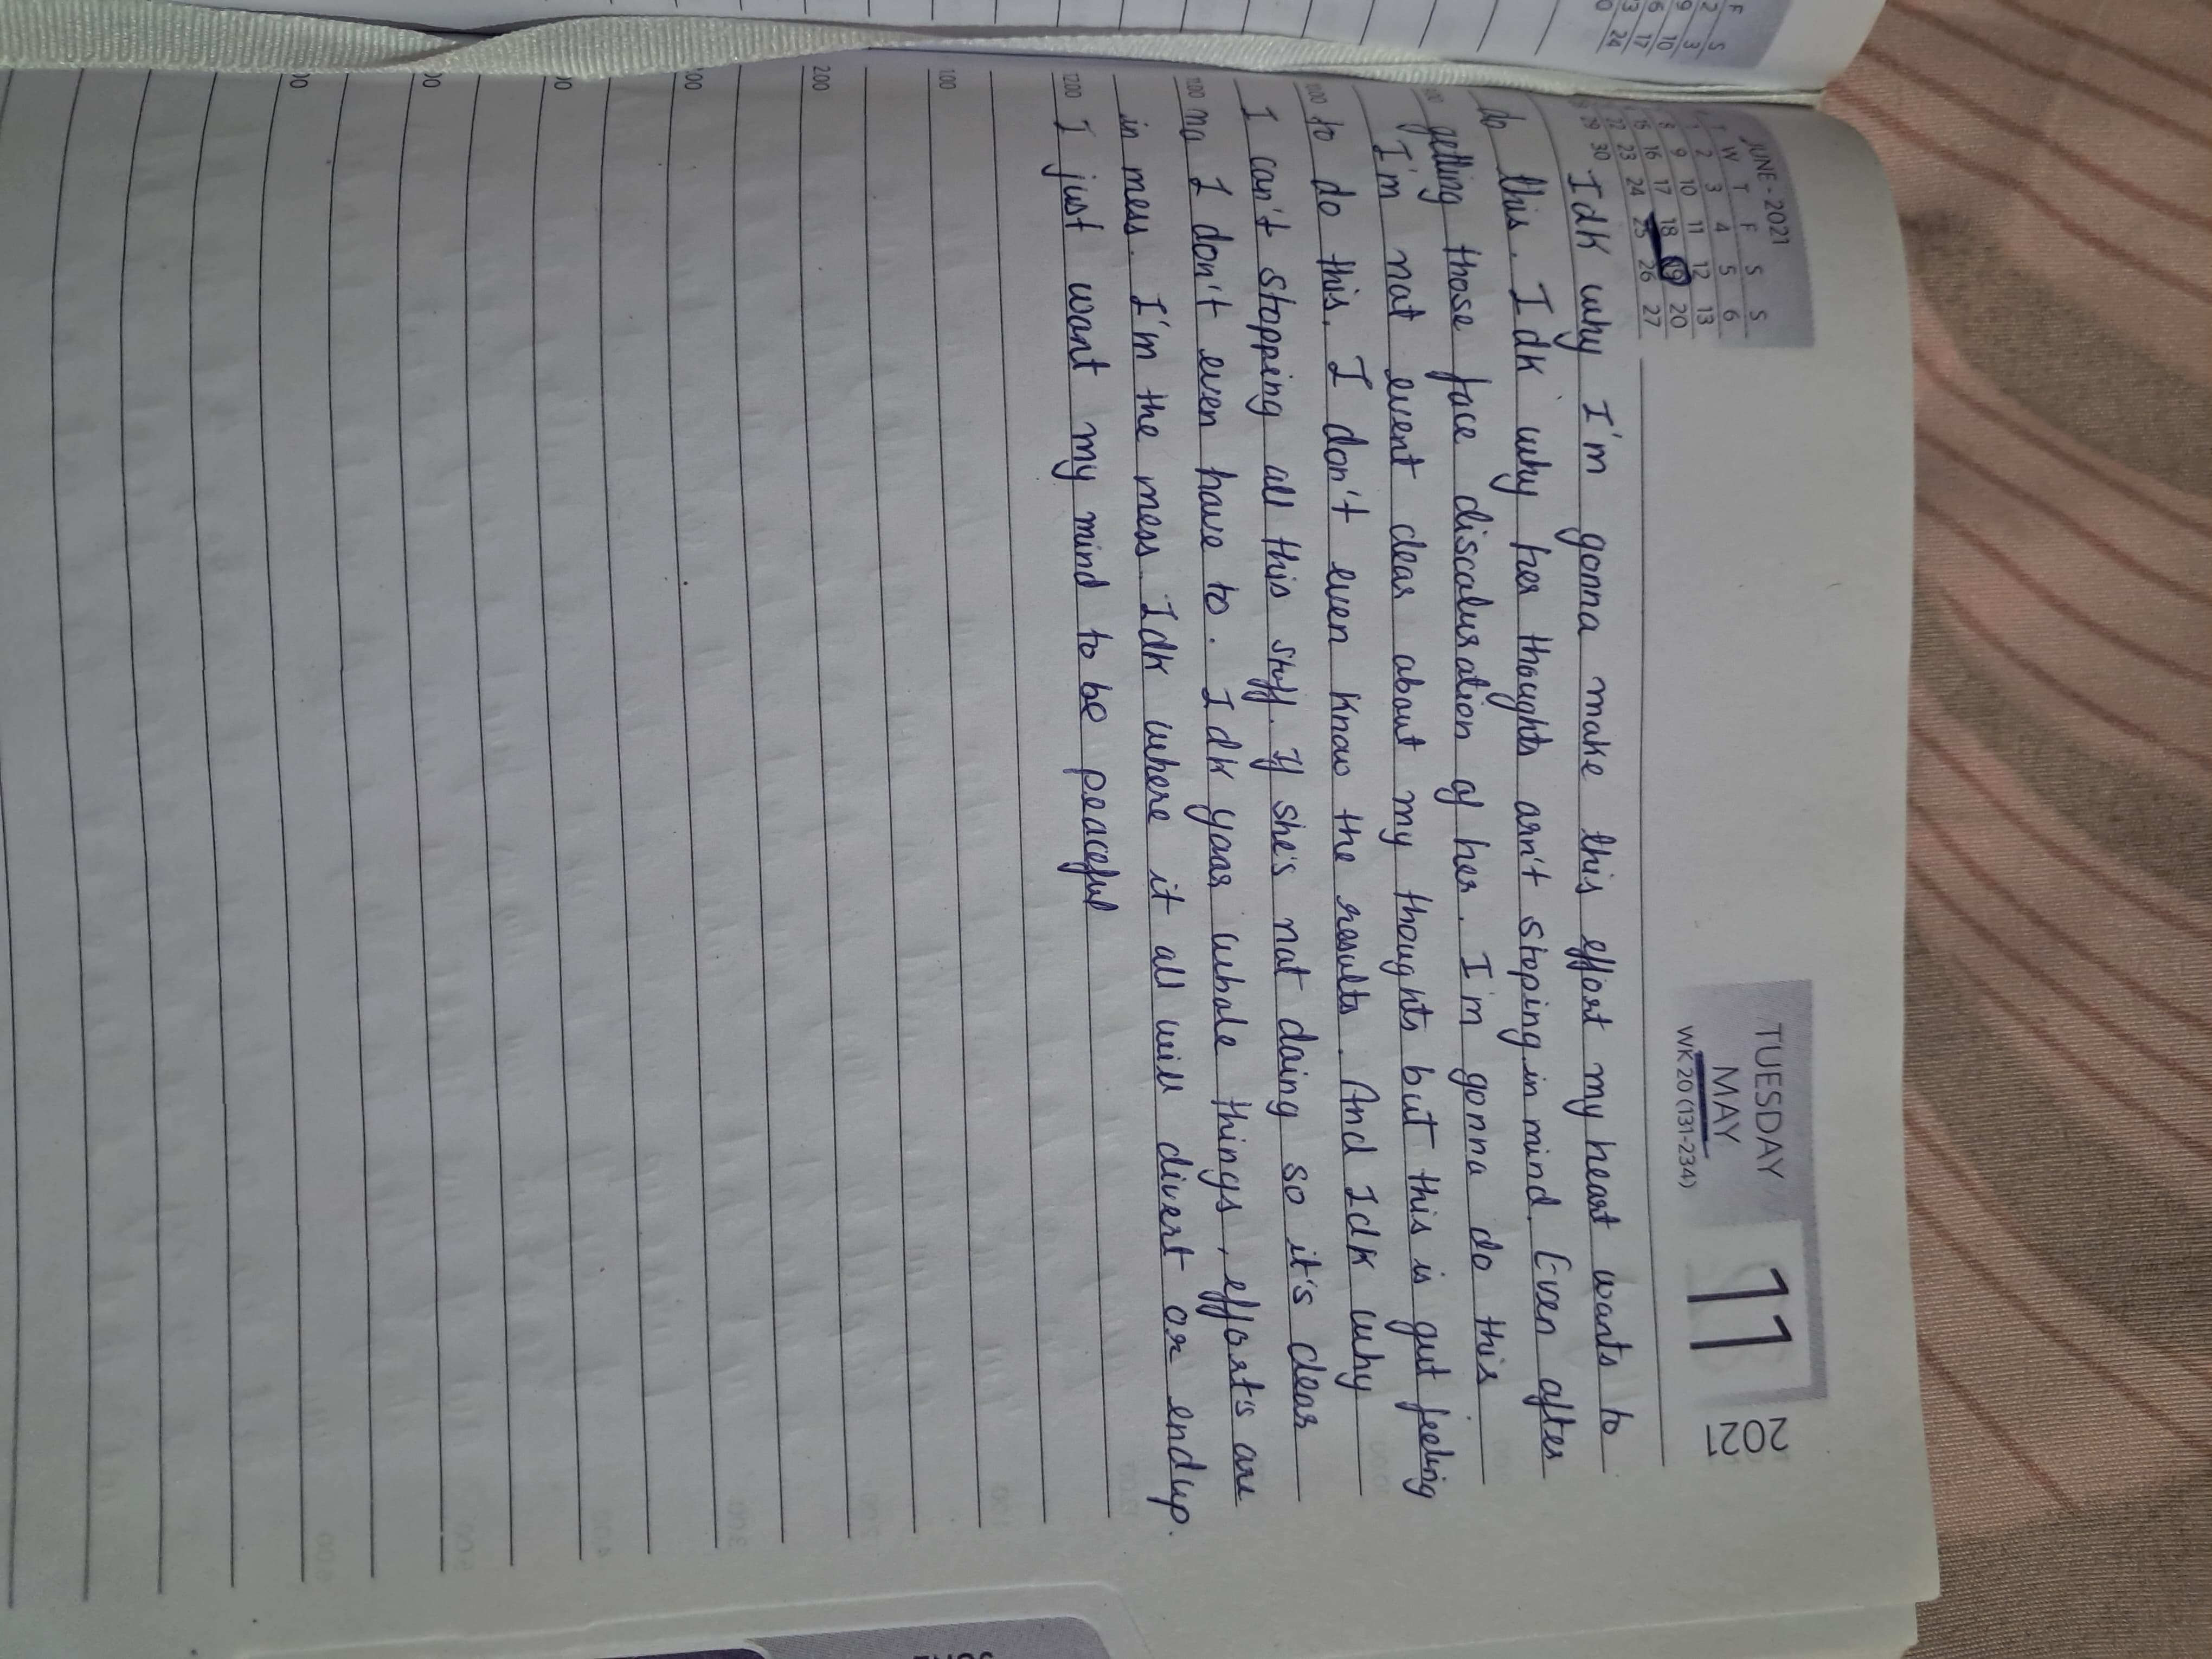 F S
2 3
9 10
6 17
3 24
JUNE - 2021
T W T F S S
1 2 3 4 5 6
8 9 10 11 12 13
15 16 17 18 19 20
22 23 24 25 26 27
29 30
TUESDAY
MAY
WK20 (131-234)
11
2021
Idk why I'm gonna make this effort my heart wants to
do this. Idk why her thoughts arn't stoping in mind. Even after
getting those face discoluration of her. I'm gonna do this
I'm not event clear about my thoughts but this is gut feeling
to do this. I don't even know the results. And Idk why
I can't stopping all this stuff. If she's not doing so it's clear
no I don't even have to. Idk yaar whole things, effort's are
in mess. I'm the mess. Idk where it all will divert or endup.
1200 I just want my mind to be peaceful
100
200